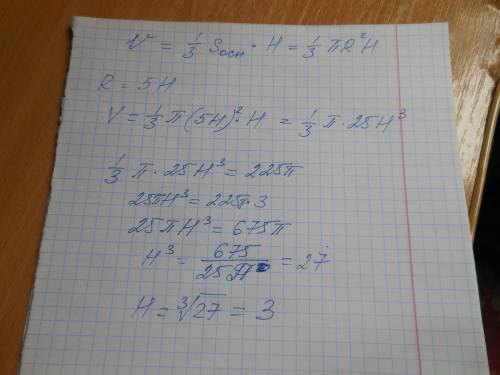 V = 1/3 Sосн · H = 1/3 πR²H
R = 5H
V = 1/3 π(5H)² · H = 1/3 π · 25H³
1/3 π · 25H³ = 225π
25πH³ = 225π · 3
25πH³ = 675π
H³ = 675/25 = 27
H = ∛27 = 3